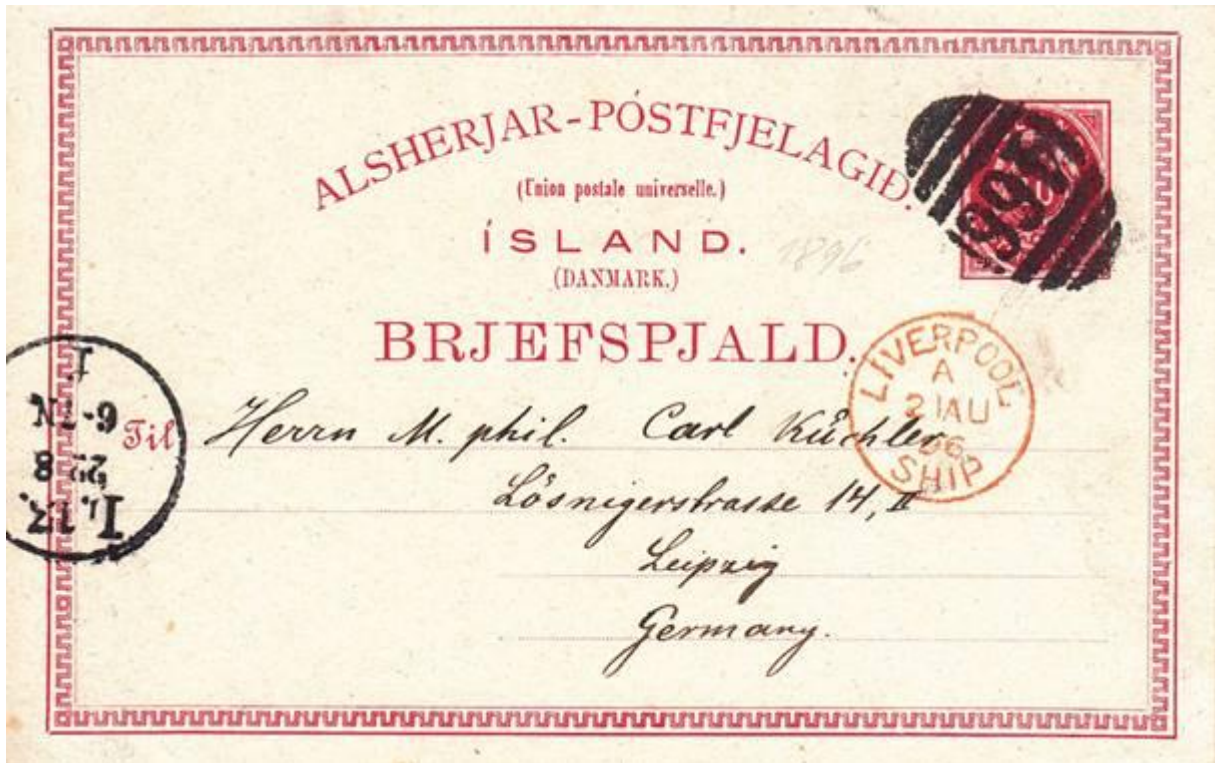 ALSHERJAR-PÓSTFJELAGIÐ.
(Union postale universelle.)
ÍSLAND.
(DANMARK.)
1896
BRJEFSPJALD.
466
LIVERPOOL
A
21 AU
96
SHIP
Til Herrn M. phil. Carl Küchler
Lösnigerstrasse 14, II
Leipzig
Germany.
22 8
6-7 N